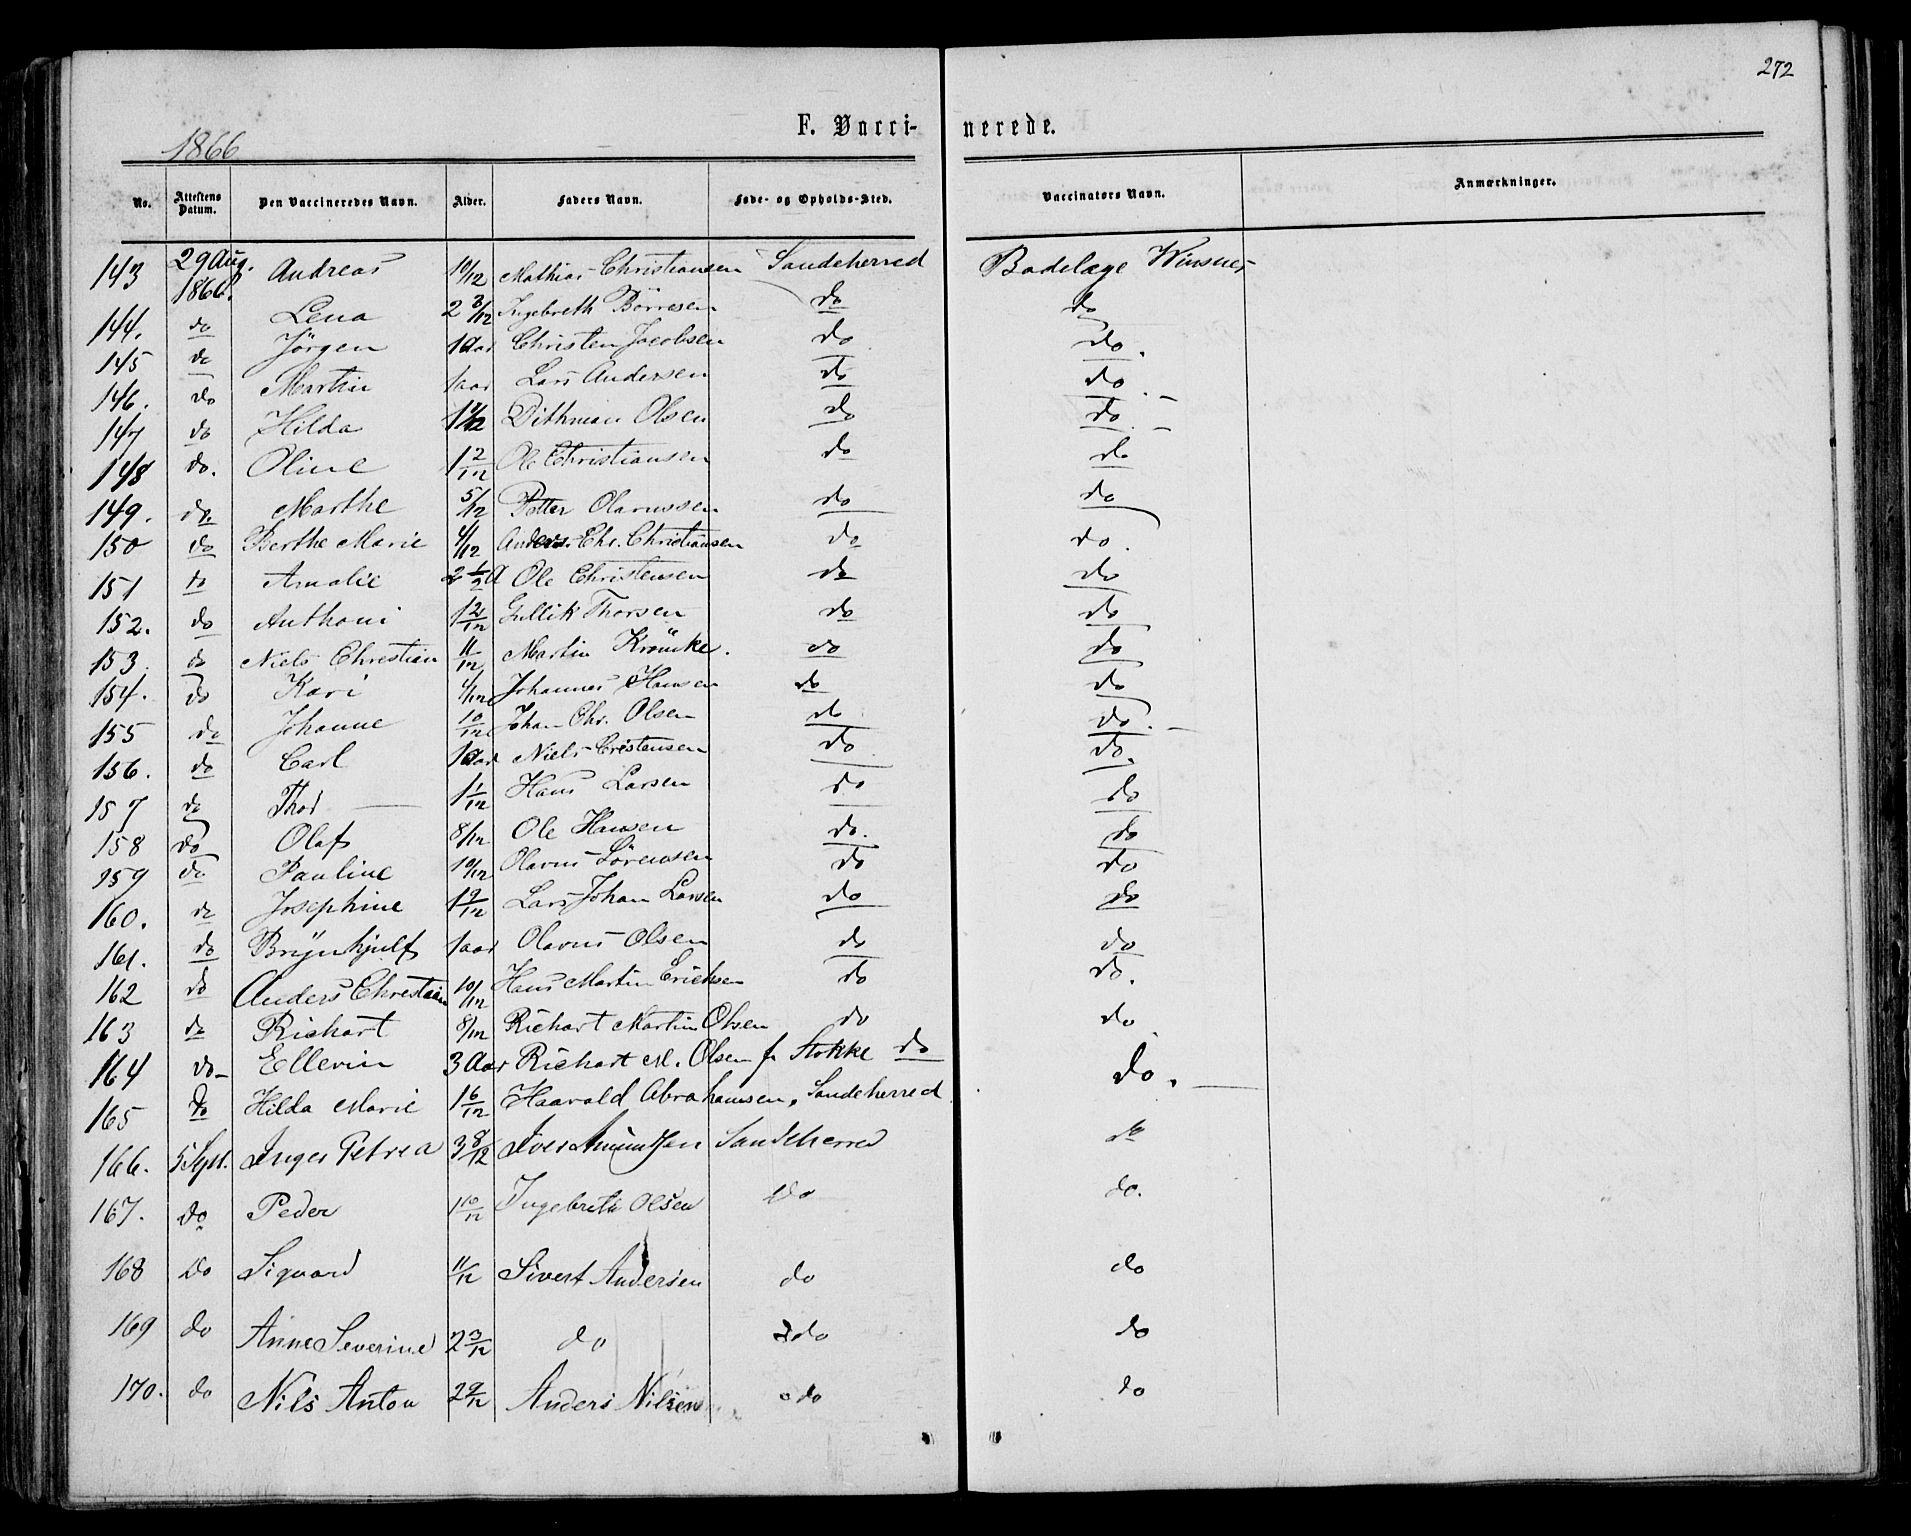 272
F. Vacci- nerede.
1866
No. Attestens Datum. Den Vaccineredes Navn. Alder. Faders Navn. Føde- og Opholds-Sted. Vaccinators Navn. Anmærkninger.
143 29 Aug. 1866. Andreas 10/12 Mathias Christiansen Sandeherred Badelæge
144. do Lena 2 3/12 Ingebreth Börresen do do
145 do Jörgen 1 aar Christen Jacobsen do do.
146. do Martin 1 aar Lars Andersen do do
147 do Hilda Dithman Olsen do do
148 do. Oline 1 2/12 Ole Christiansen do do
149. do. Marthe 5/12 Petter Olavussen do do
150 do Berthe Marie 4/12 Anders Chr. Christiansen do do.
151 do Amalie 2 1/2 A Ole Christensen do do
152. do Anthoni 1 2/12 Gullik Thorsen do do
153. do Niels Christian 11/12 Martin Krömke. do do
154. do Kari 4/12 Johannes Hansen do do
155 do Johanne 10/12 Johan Chr. Olsen do do. —
156. do Carl 1 aar Niels Cristensen do do.
157 do Thod — 1 1/12 Hans Larsen do do
158 do Olaf 8/12 Ole Hansen do. do
159 do Pauline 10/12 Olavus Sörensen do do
160. do Josephine 1 9/12 Lars Johan Larsen do do
161. do Brÿnhjulf 1 aar Olavus Olsen do do
162 do Anders Christian 10/12 Hans Martin Erichsen do do.
163 do Richart 8/12 Richart Martin Olsen do do
164 do Ellevin 3 Aar Richart M. Olsen fr Stokke do do.
165 do Hilda Marie 1 6/12 Haavald Abrahamsen, Sandeherred
166. 5 Sept. Inger Petrea 3 8/12 Iver Amundsen Sandeherred do
167. do Peder 1 10/12 Ingebreth Olsen do do.
168 do Siquard 11/12 Sivert Andersen do do
169 do Anne Severine 2 3/12 do do do
170. do Nils Anton 2 9/12 Anders Nilsen do do